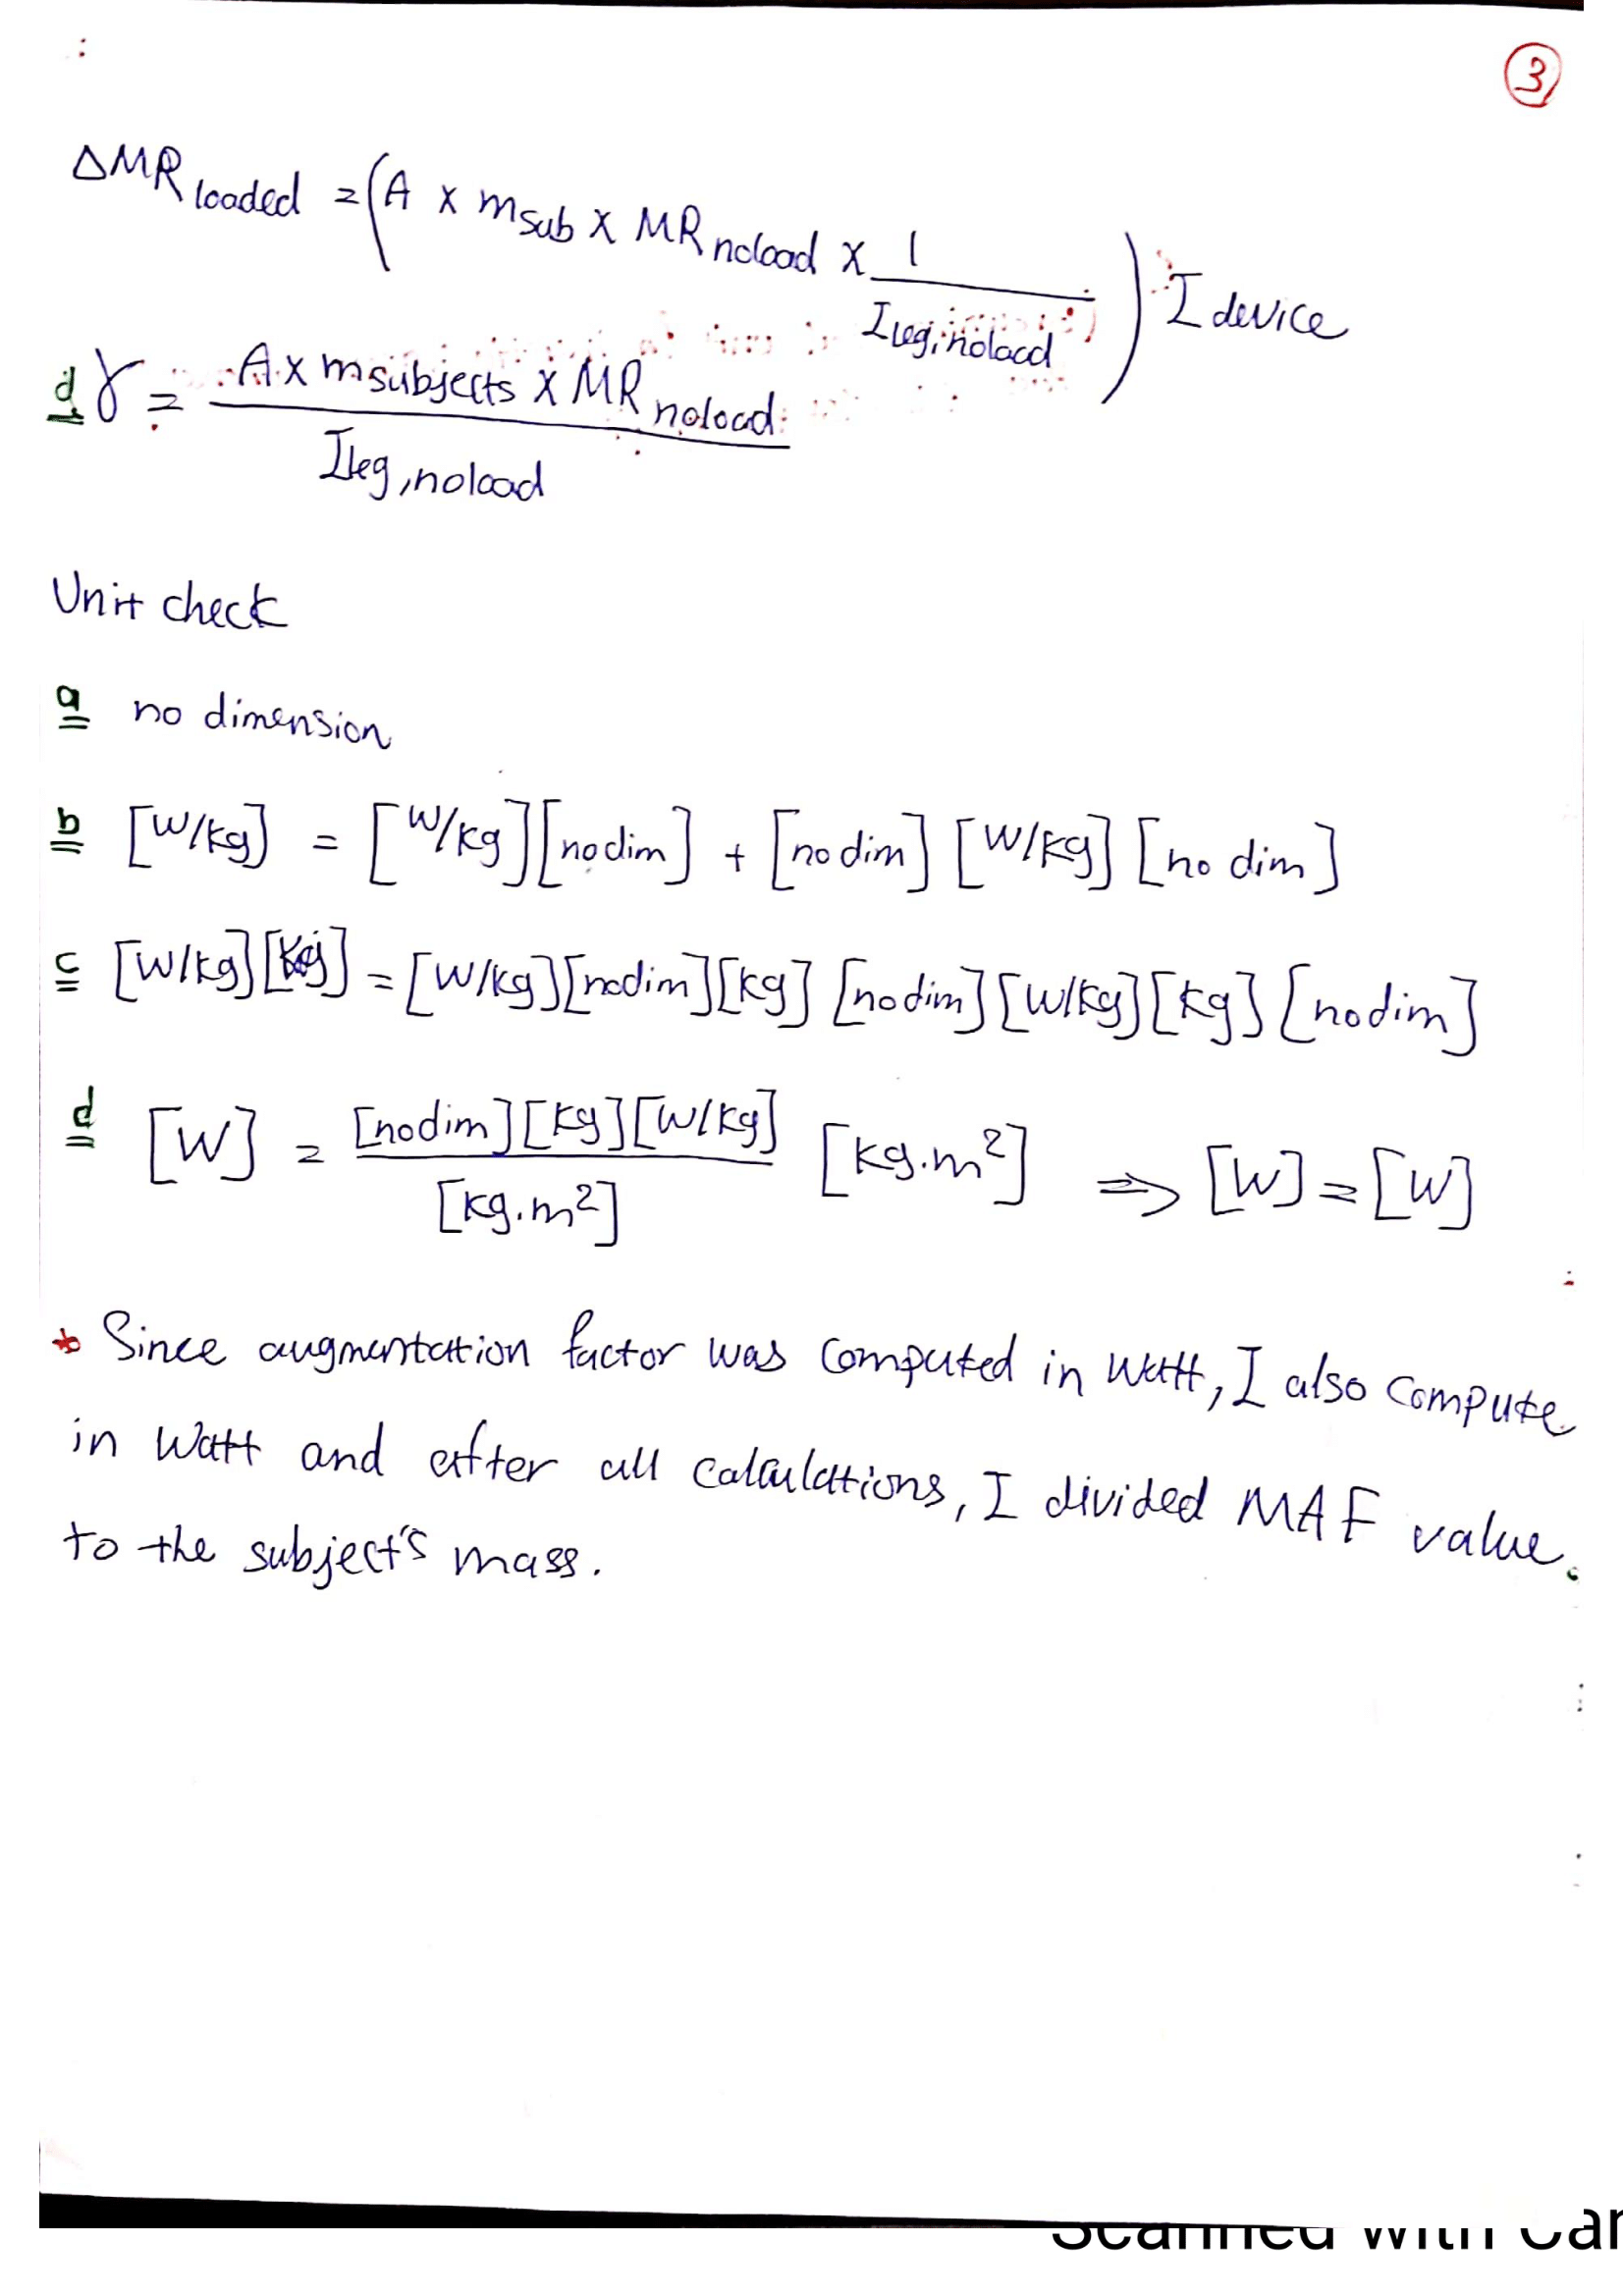 3
ΔMR loaded = (A x m sub x MR noload x 1 / I leg,noload) I device
d γ = A x m subjects x MR noload / I leg,noload
Unit check
a no dimension
b [W/kg] = [W/kg][nodim] + [nodim][W/kg][no dim]
c [W/kg][kg] = [W/kg][nodim][kg] [nodim][W/kg][kg][nodim]
d [W] = [nodim][kg][W/kg] / [kg.m²] [kg.m²] => [W] = [W]
* Since augmentation factor was computed in Watt, I also compute
in Watt and after all calculations, I divided MAF value
to the subject's mass.
Scanned with Car